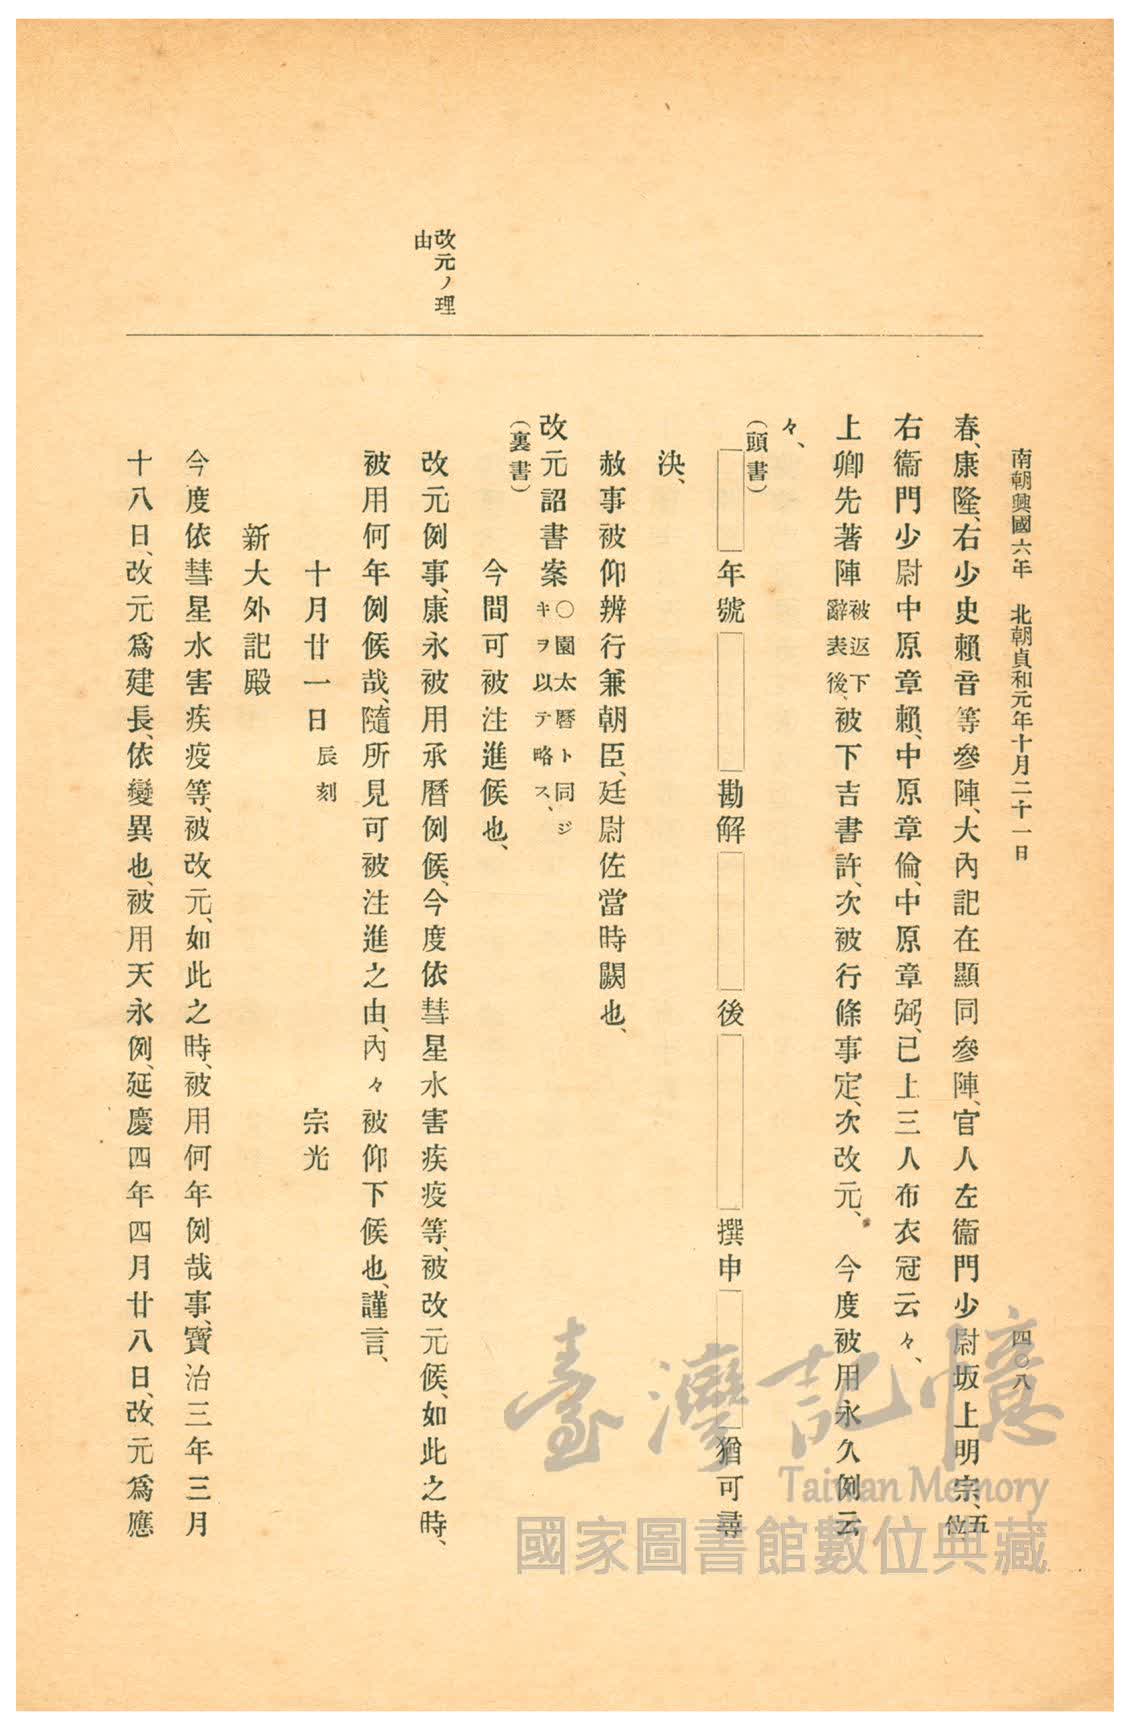 南朝興國六年　北朝貞和元年十月二十一日
四〇八
春、康隆、右少史賴音等參陣、大內記在顯同參陣、官人左衞門少尉坂上明宗、五位
右衞門少尉中原章賴、中原章倫、中原章弼、已上三人布衣冠云々、
上卿先著陣被返下辭表後、被下吉書許、次被行條事定、次改元、　今度被用永久例云
々、
（頭書）
年號　勘解　後　撰申　猶可尋
決、
赦事被仰辨行兼朝臣、廷尉佐當時闕也、
改元詔書案○園太曆ト同ジキヲ以テ略ス、
（裏書）
今間可被注進候也、
改元ノ理由
改元例事、康永被用承曆例候、今度依彗星水害疾疫等、被改元候、如此之時、
被用何年例候哉、隨所見可被注進之由、內々被仰下候也、謹言、
十月廿一日辰刻　宗光
新大外記殿
今度依彗星水害疾疫等、被改元、如此之時、被用何年例哉事、寶治三年三月
十八日、改元爲建長、依變異也、被用天永例、延慶四年四月廿八日、改元爲應
臺灣記憶
Taiwan Memory
國家圖書館數位典藏